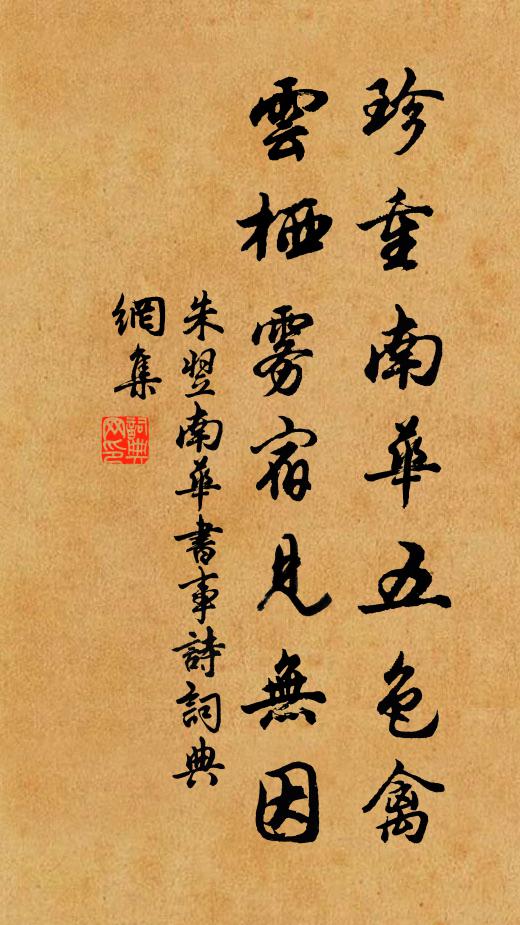 珍重南華五色禽
雲栖雾宿見無因
朱翌南華書事詩詞典
網集
詞典
网印